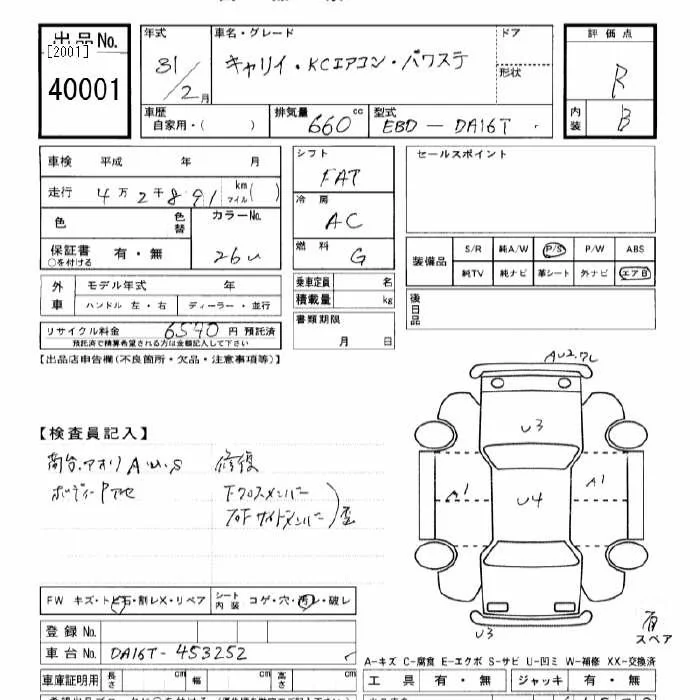 出品No.
[2001]
40001
年式
31/2月
車名・グレード
キャリイ・KCエアコン・パワステ
ドア
形状
評価点
R
内装
B
車歴
自家用・( )
排気量
660 cc
型式
EBD-DA16T
車検 平成 年 月
走行 4万2千891 km マイル( )
色
色替
カラーNo.
26U
保証書 有・無
○を付ける
シフト
FAT
冷房
AC
燃料
G
乗車定員 名
積載量 kg
書類期限
月 日
セールスポイント
装備品
S/R 純A/W P/S P/W ABS
純TV 純ナビ 革シート 外ナビ エアB
後日品
外車
モデル年式 年
ハンドル 左・右 ディーラー・並行
リサイクル料金 6540 円 預託済
預託済で積算希望される方は金額記入して下さい
【出品店申告欄(不良箇所・欠品・注意事項等)】
【検査員記入】
荷台.アオリ A.U.S 修復
ボディーP
Fクロスメンバー
サイドメンバー
AU2.
U3
A1
U4
A1
U3
有
スペア
FW キズ・トビ石・割レX・リペア
シート内装 コゲ・穴・汚レ・破レ
登録No.
車台No. DA16T-453252
A-キズ C-腐食 E-エクボ S-サビ U-凹ミ W-補修 XX-交換済
車庫証明用 長さ 幅 高さ
工具 有・無 ジャッキ 有・無